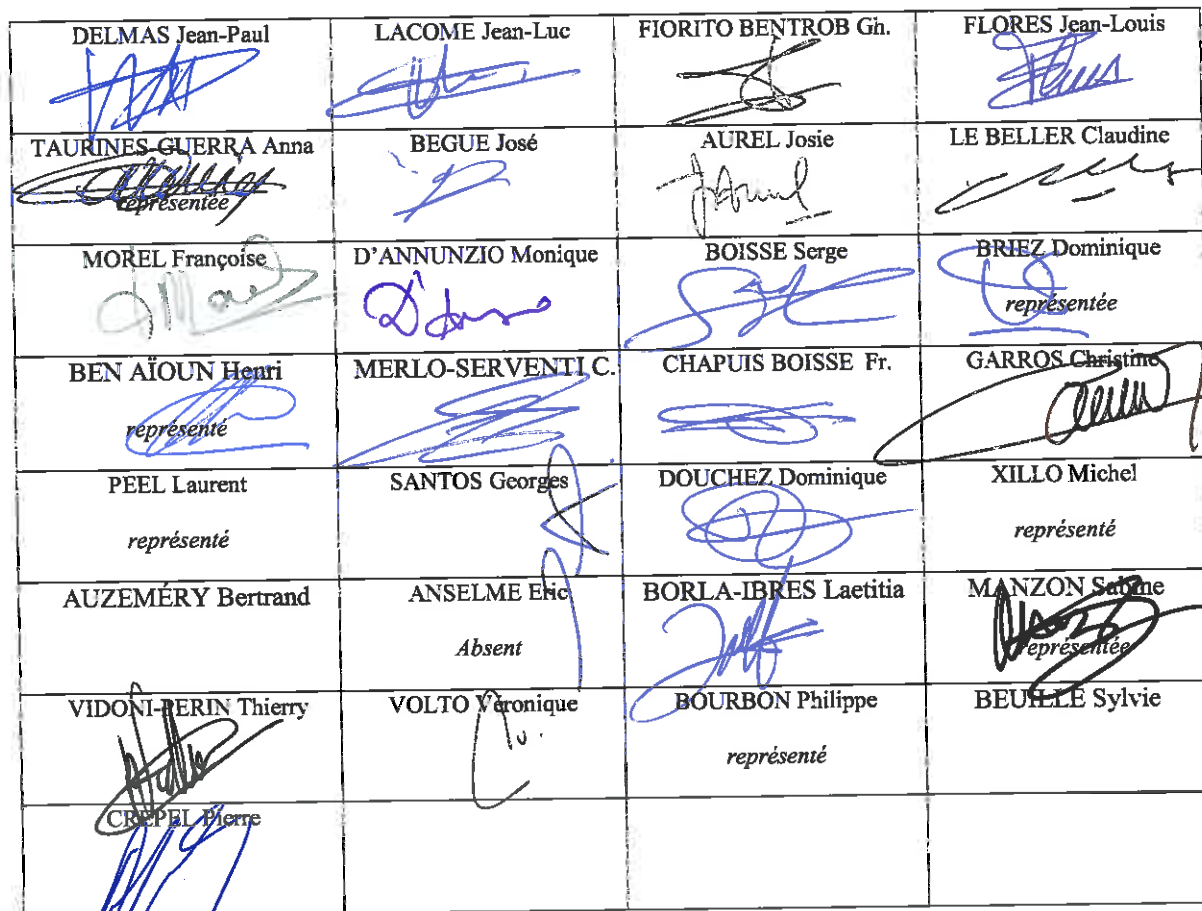 DELMAS Jean-Paul LACOME Jean-Luc FIORITO BENTROB Gh. FLORES Jean-Louis
TAURINES-GUERRA Anna BEGUE José AUREL Josie LE BELLER Claudine
représentée
MOREL Françoise D'ANNUNZIO Monique BOISSE Serge BRIEZ Dominique
représentée
BEN AÏOUN Henri MERLO-SERVENTI C. CHAPUIS BOISSE Fr. GARROS Christine
représenté
PEEL Laurent SANTOS Georges DOUCHEZ Dominique XILLO Michel
représenté représenté
AUZEMÉRY Bertrand ANSELME Eric BORLA-IBRES Laetitia MANZON Sabine
Absent représentée
VIDONI-PERIN Thierry VOLTO Véronique BOURBON Philippe BEUILLE Sylvie
représenté
CREPEL Pierre